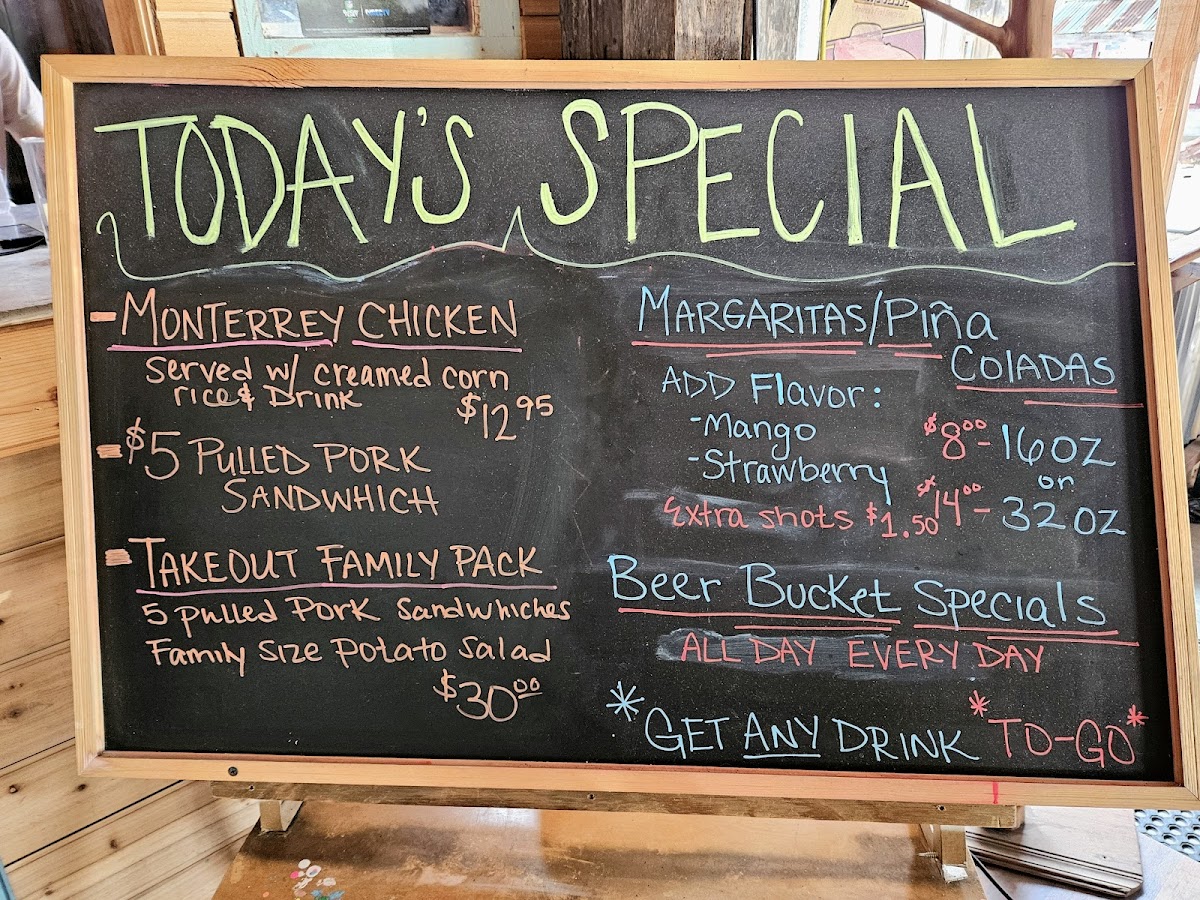 TODAY'S SPECIAL
- MONTERREY CHICKEN
Served w/ creamed corn
rice & Drink
$12.95
- $5 PULLED PORK
SANDWHICH
- TAKEOUT FAMILY PACK
5 Pulled Pork Sandwhiches
Family Size Potato Salad
$30.00
MARGARITAS/PIÑA
COLADAS
ADD Flavor:
-Mango
-Strawberry
$8.00 - 16 OZ
or
$14.00 - 32 OZ
Extra shots $1.50
Beer Bucket Specials
ALL DAY EVERY DAY
* GET ANY DRINK *TO-GO*